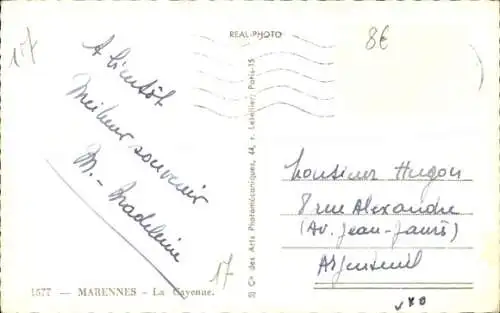 REAL-PHOTO
8€
17
A bientôt
Meilleur souvenir
M. - Madeleine
17
1577 — MARENNES - La Cayenne.
S) Cie des Arts Photomécaniques, 44, r. Letellier; Paris-15
Monsieur Hugon
8 rue Alexandre
(Av. Jean-Jaurès)
Argenteuil